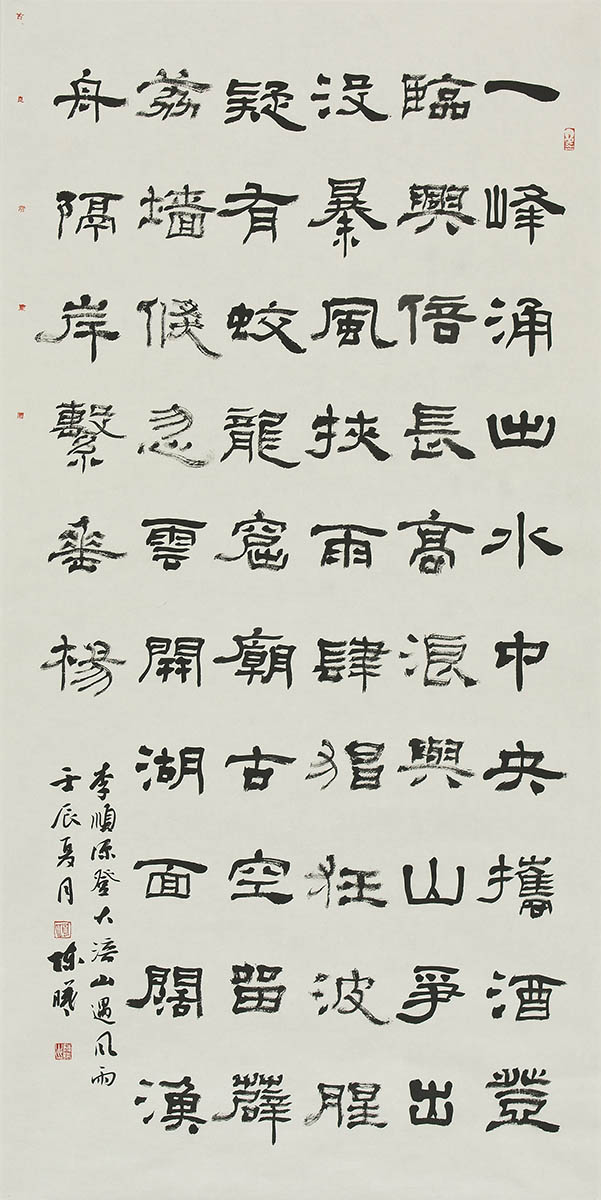 一峰涌出水中央攜酒登
臨興倍長高浪與山爭出
没暴風挾雨肆猖狂波腥
疑有蛟龍窟廟古空留薜
荔墙倏忽雲開湖面闊漁
舟隔岸繫垂楊
李順源登大涪山遇风雨
壬辰夏月 陈曦